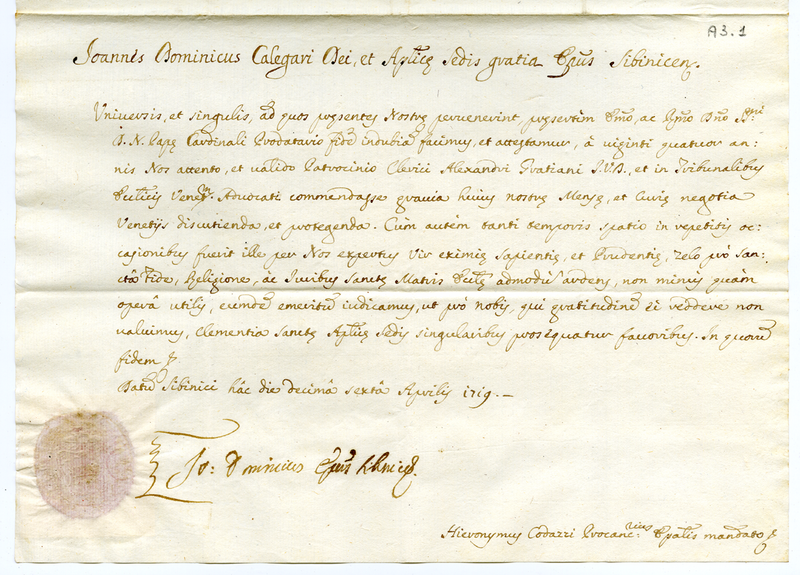 A3.1
Joannes Dominicus Calegari Dei, et Aplicę Sedis gratia Epus Sibinicen.
Universis, et singulis, ad quos pręsentes Nostrę pervenerint, pręsertim Emo, ac Rmo Dno
S. N. Papę Cardinali Prodatario fidē indubiā facimus, et attestamur, à viginti quatuor an-
nis Nos attento, et valido Patrocinio Clerici Alexandri Gratiani I.V.D., et in Tribunalibus
Publicis Venet. Advocati commendasse gravia huius nostrę Mensę, et Curię negotia
Venetijs discutienda, et protegenda. Cùm autèm tanti temporis spatio in repetitis oc-
casionibus fuerit ille per Nos expertus Vir eximię sapientię, et Prudentię, Zelo prò San-
ctâ Fide, Religione, àc Iuribus Sanctę Matris Ecclę admodū ardens, non minùs quàm
operâ utilis, eundē emeritū iudicamus, ut prò nobis, qui gratitudinē ei reddere non
valuimus, Clementia Sanctę Aplicę Sedis singularibus prosequatur favoribus. In quorū
fidem
Datū Sibinici hâc die decimâ sextâ Aprilis 1719. –
Jo: Dominicus Epus Sibnicēs.
Hieronymus Codazzi Procanc:rius Epalis mandato